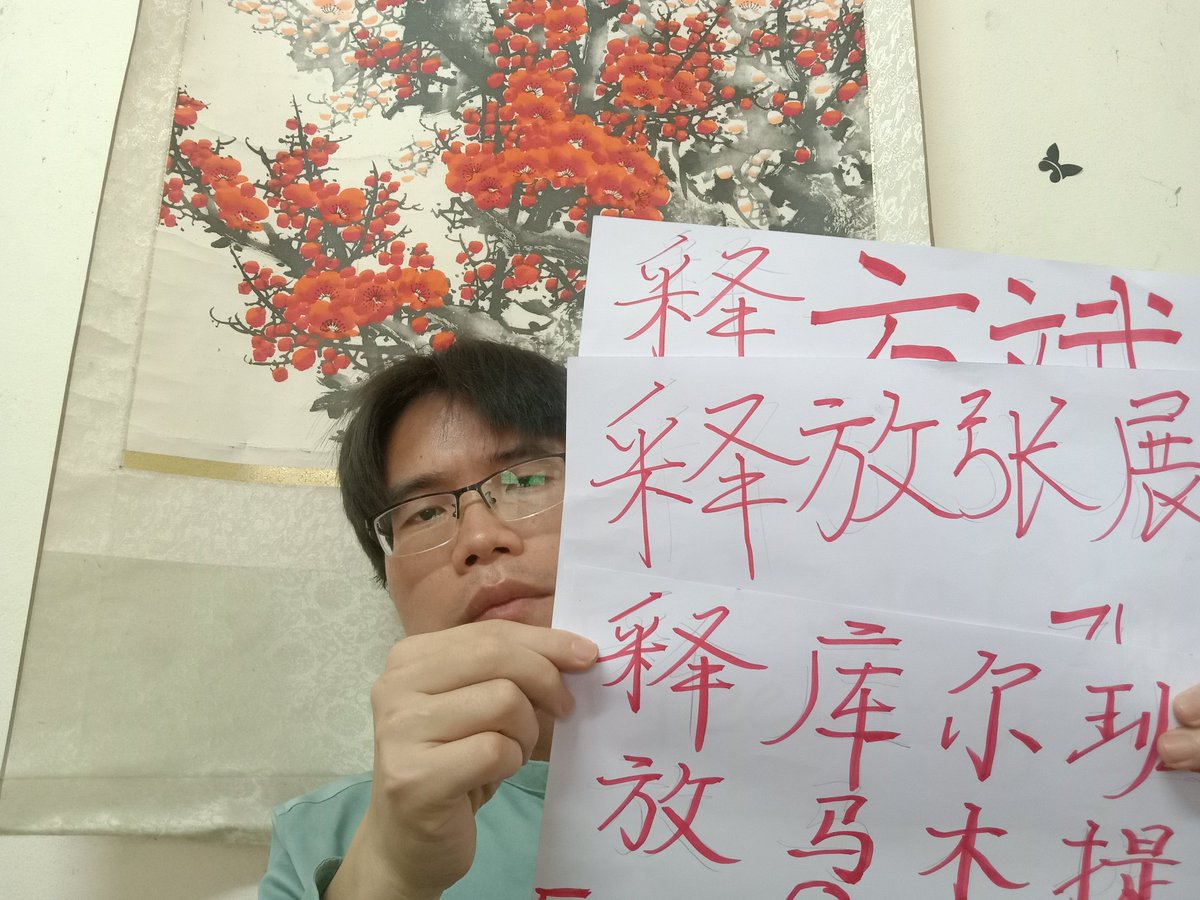 释方斌
释放张展
释库尔班
放马木提